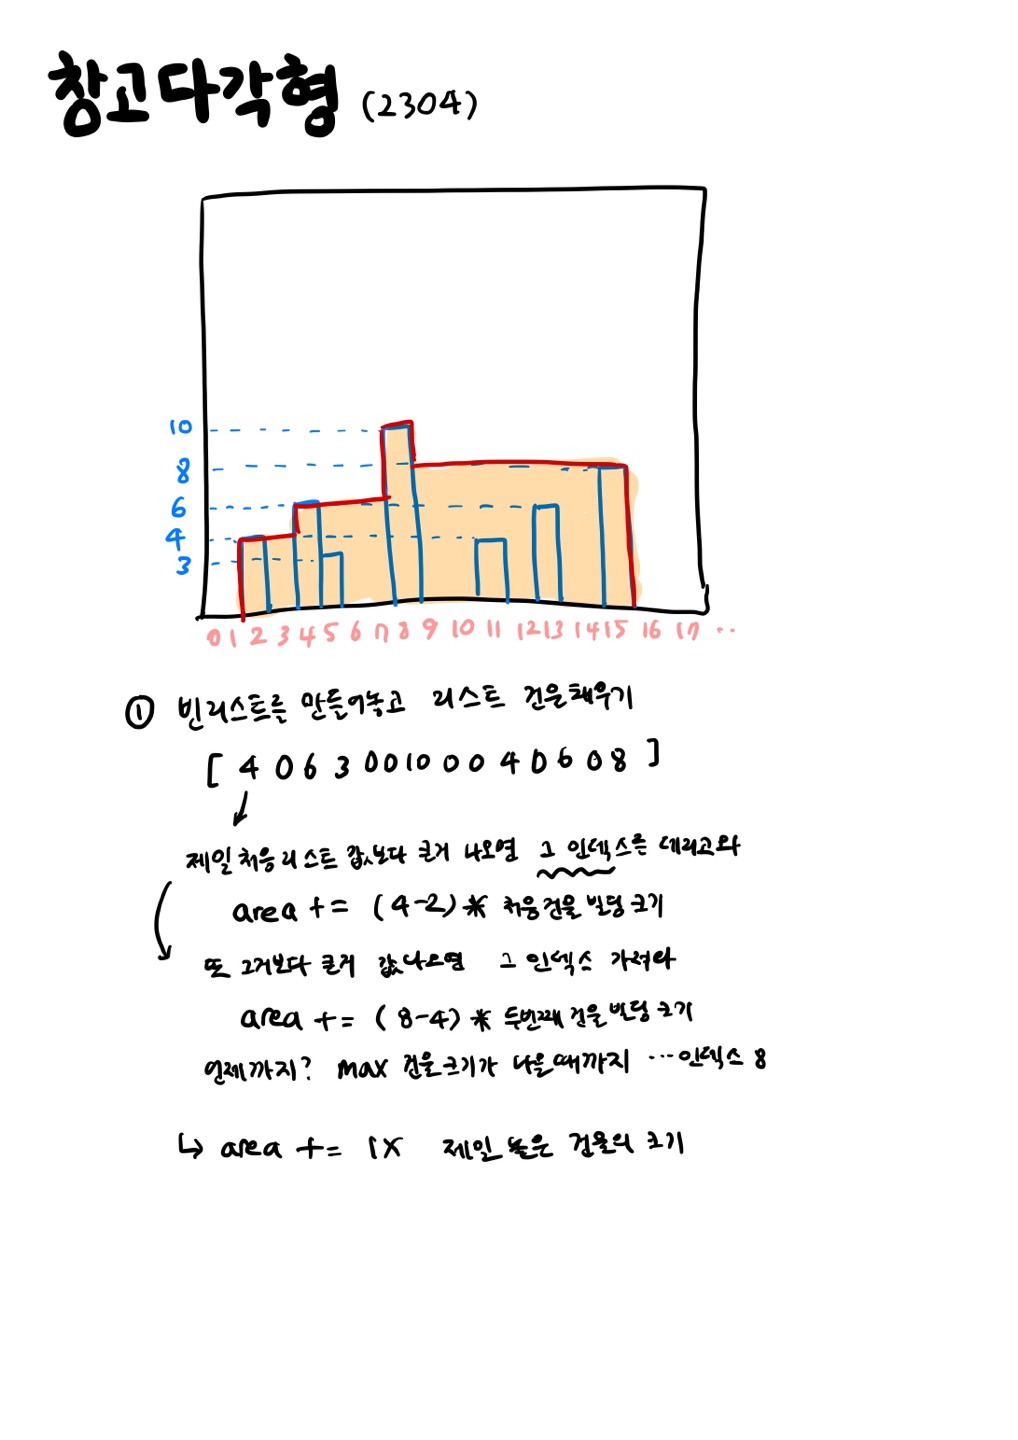 창고다각형 (2304)
10
8
6
4
3
0 1 2 3 4 5 6 7 8 9 10 11 12 13 14 15 16 17 ..
① 빈리스트를 만들어놓고 리스트 건물채우기
[ 4 0 6 3 0 0 10 0 0 4 0 6 0 8 ]
제일 처음 리스트 값보다 큰게 나오면 그 인덱스를 데리고와
area += (4-2)* 처음건물 빌딩크기
또 그거보다 큰게 값나오면 그 인덱스 가져와
area += (8-4)* 두번째 건물 빌딩 크기
언제까지? max 건물크기가 나올때까지 ...인덱스 8
↳ area += 1X 제일 높은 건물의 크기